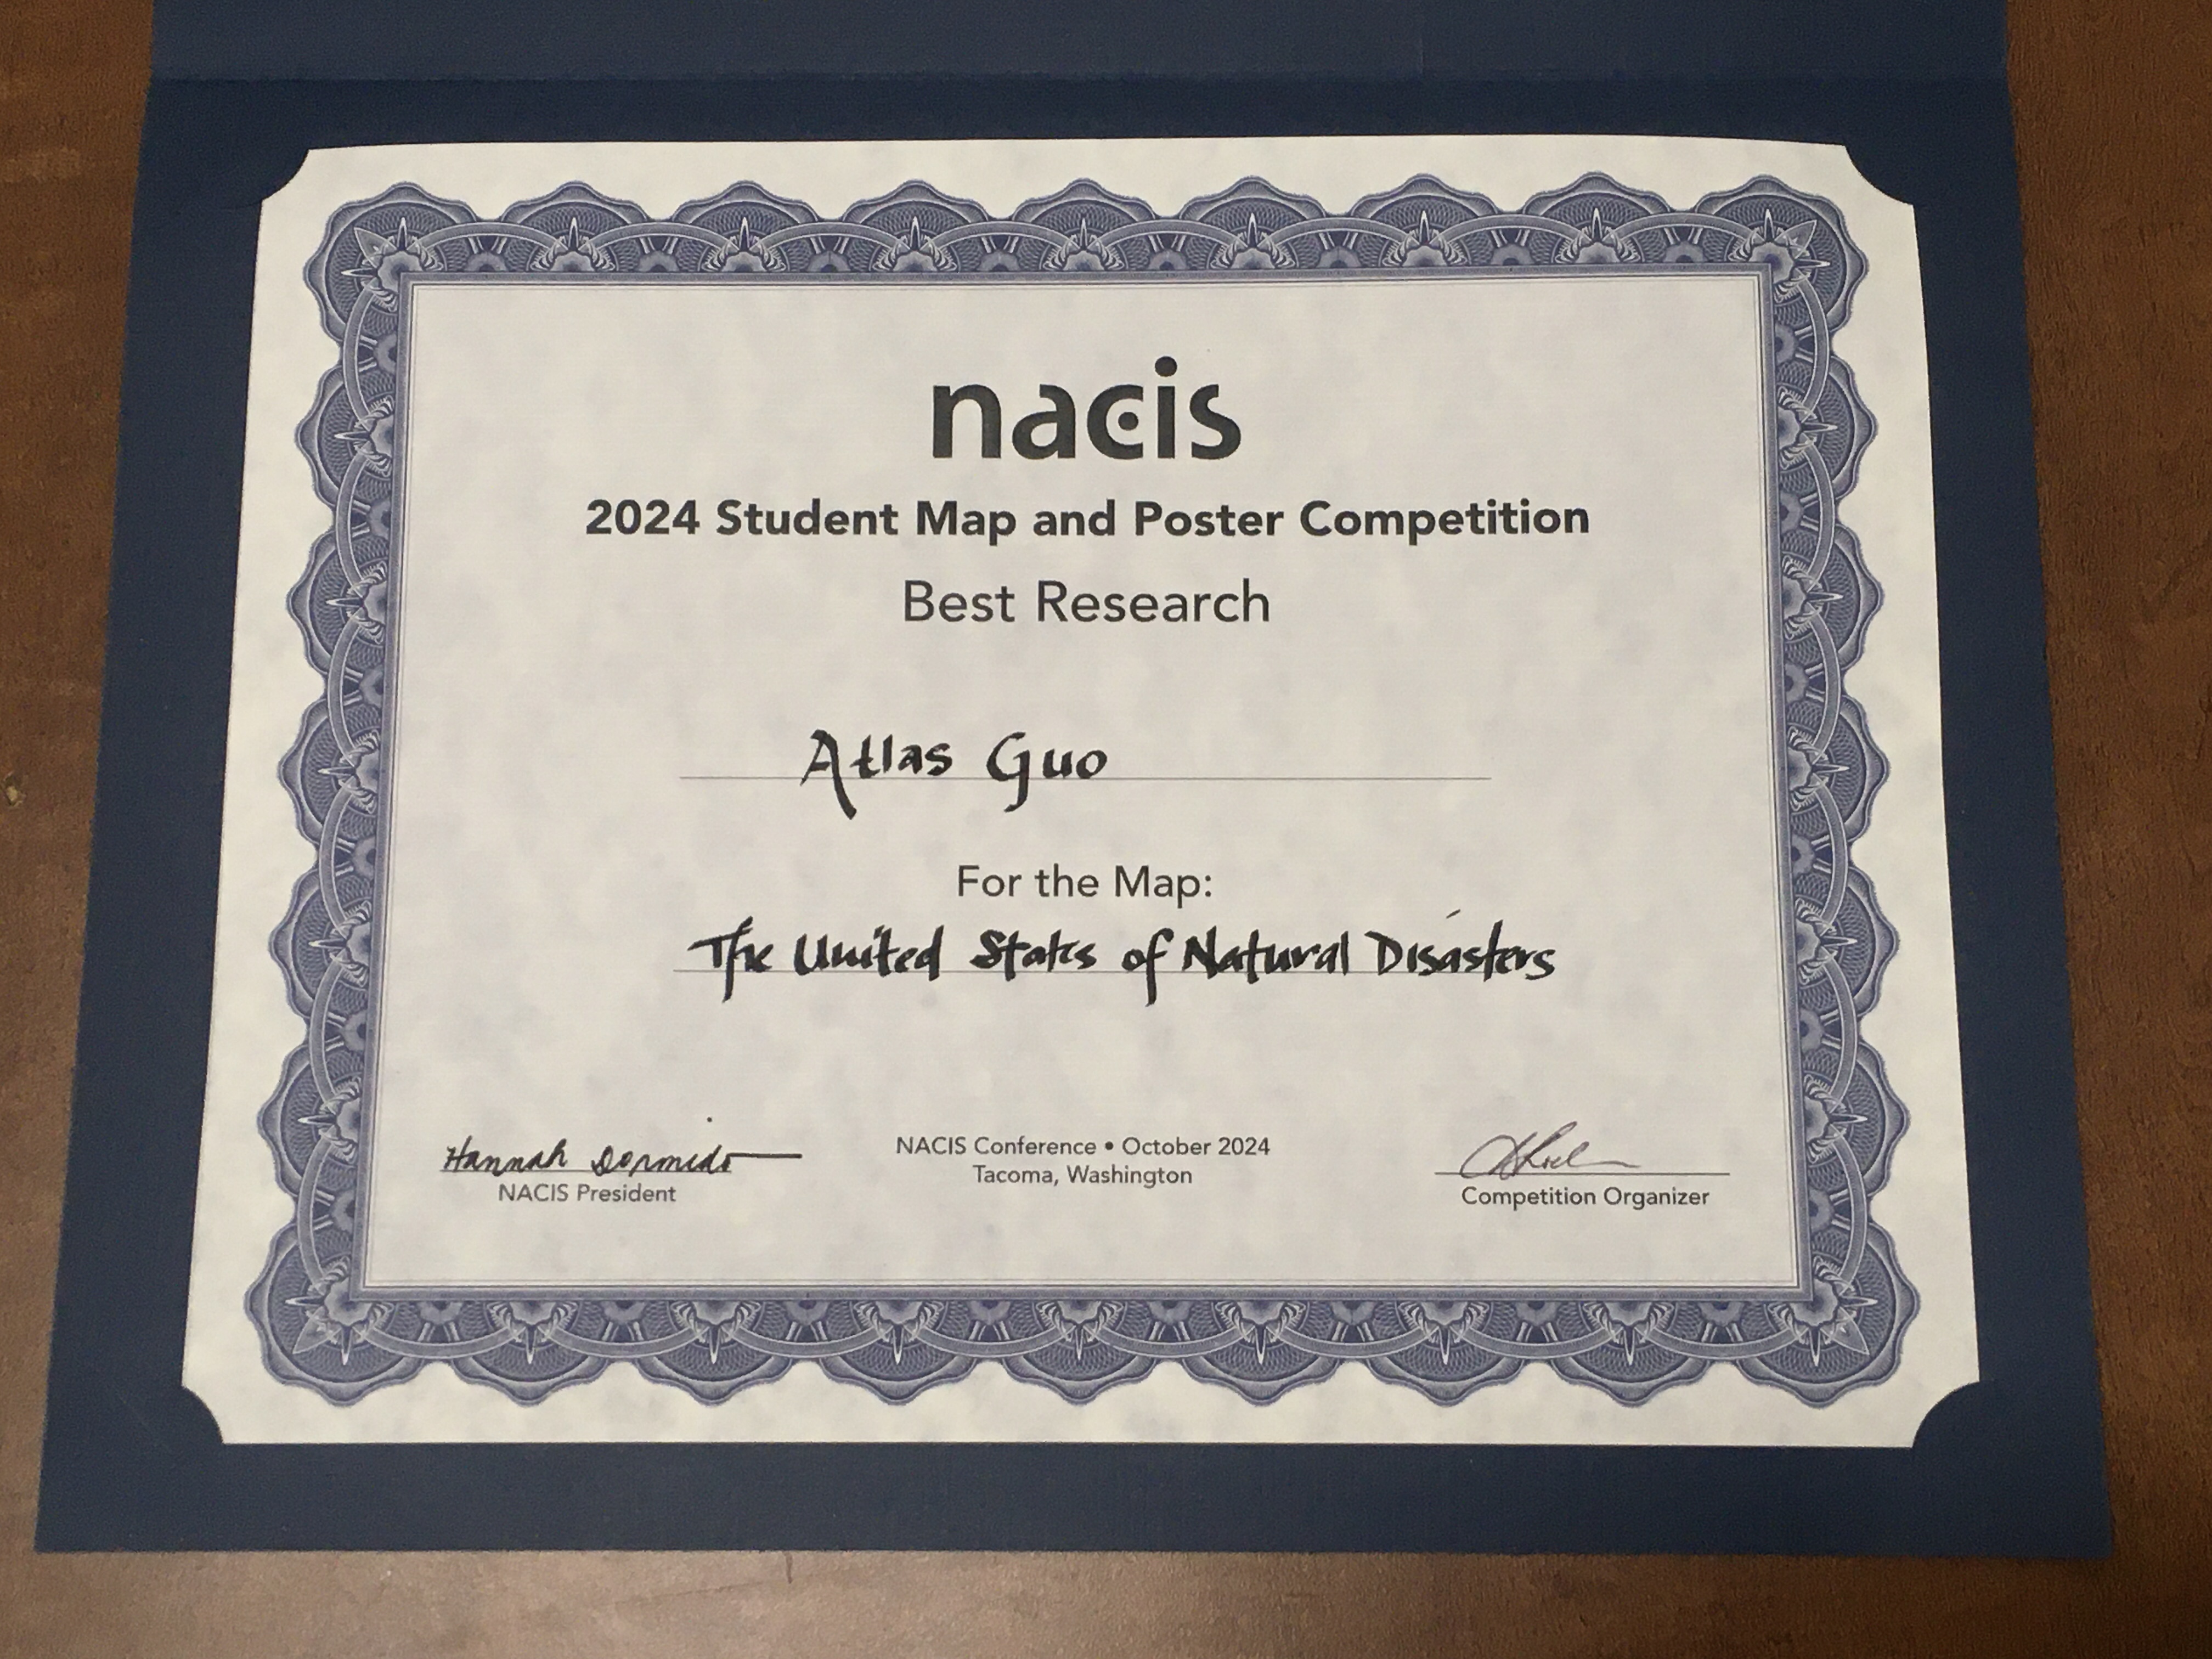 nacis
2024 Student Map and Poster Competition
Best Research
Atlas Guo
For the Map:
The United States of Natural Disasters
Hannah Dormido
NACIS President
NACIS Conference • October 2024
Tacoma, Washington
Competition Organizer